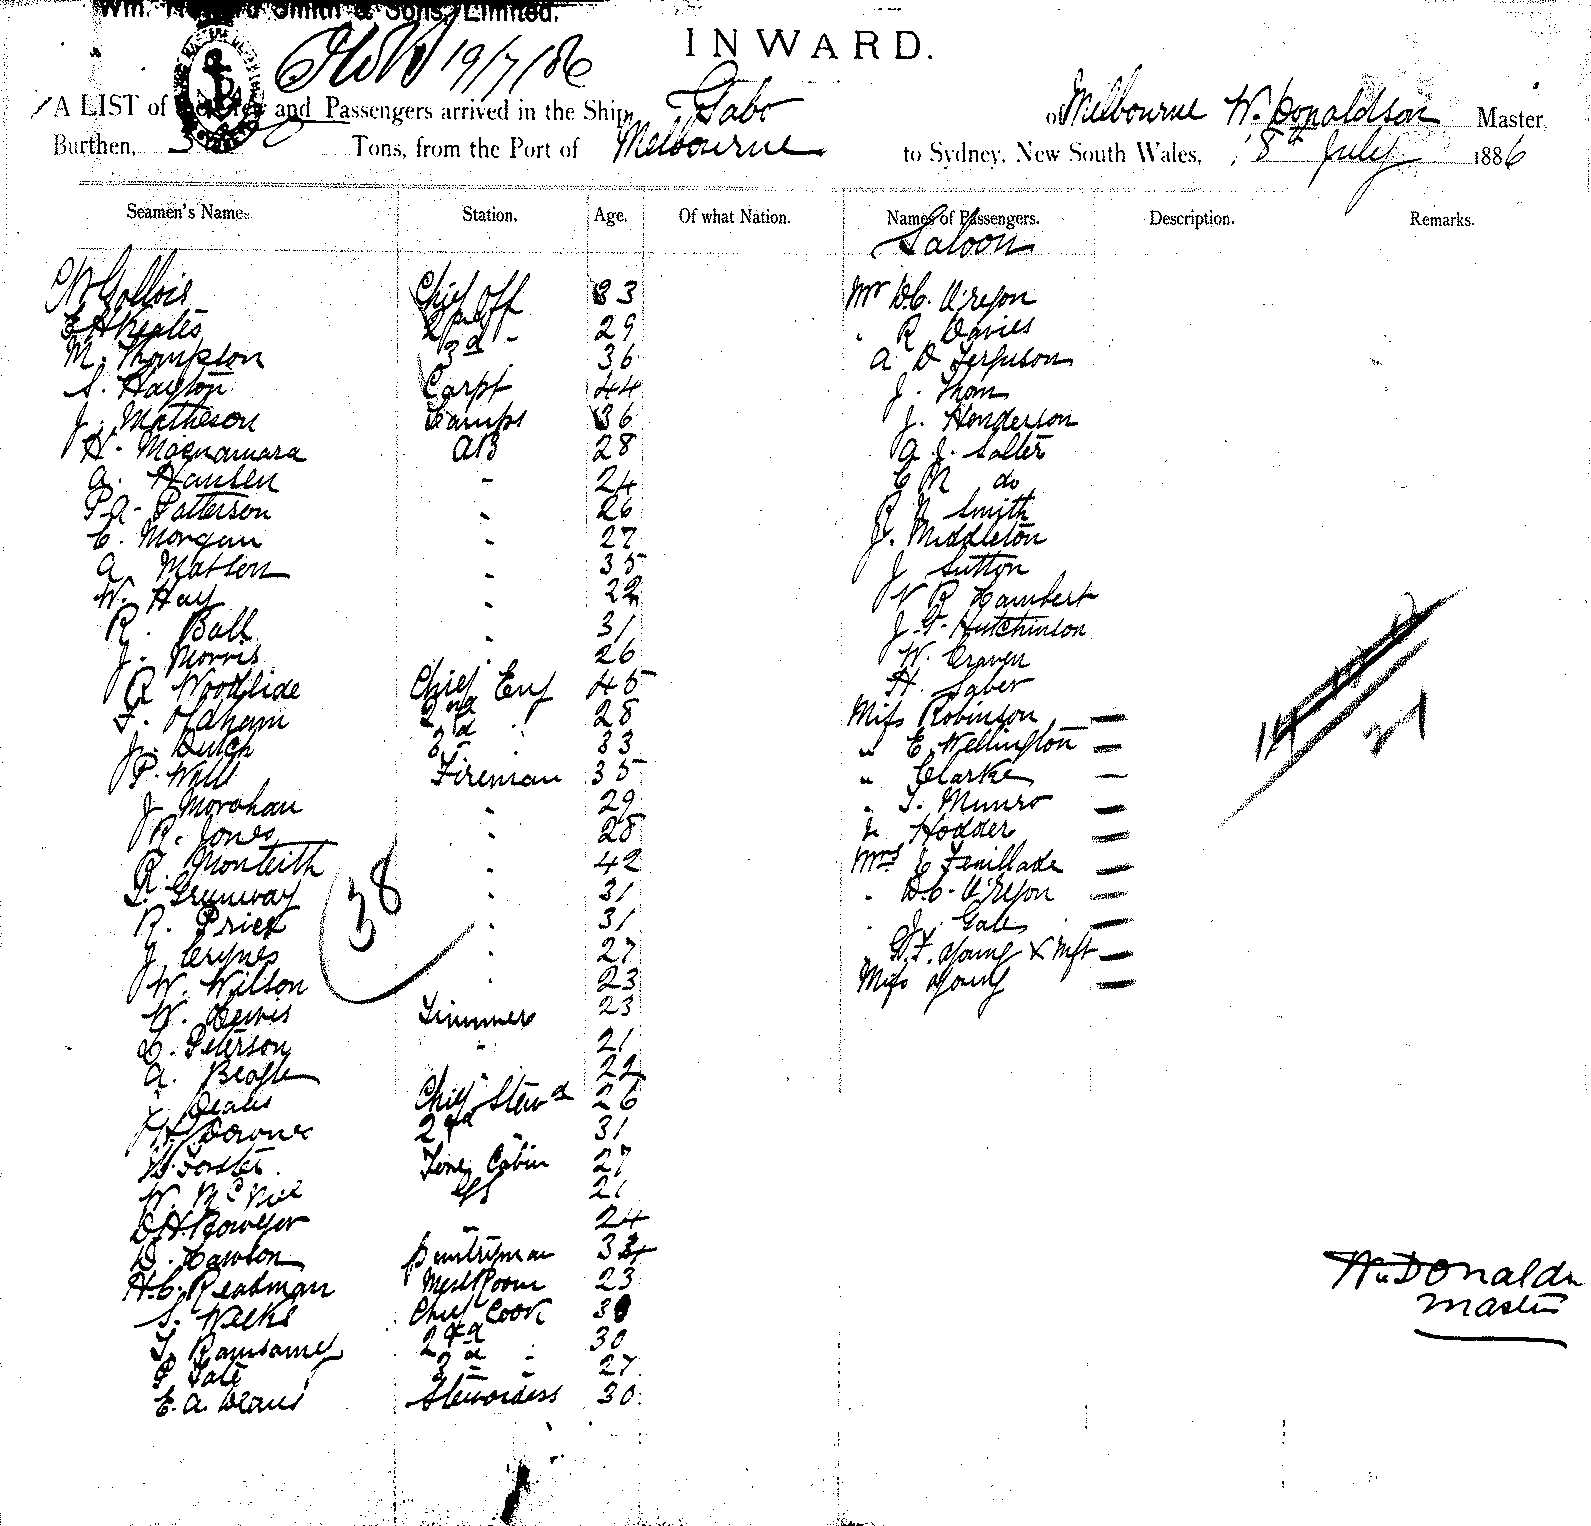 Wm. Howard Smith & Sons, Limited.
INWARD.
19/7/86
A LIST of the Crew and Passengers arrived in the Ship, Gabo of Melbourne W. Donaldson Master
Burthen, Tons, from the Port of Melbourne to Sydney, New South Wales, 18th July 1886
Seamen's Names. Station. Age. Of what Nation. Names of Passengers. Description. Remarks.
Saloon
Chief Off 33 Mr D.C. O'Regon
E H Keates 2nd Off 29 " R Davies
M. Thompson 3d " 36 A D Ferguson
S. Hayton Carpt 44 J. Thom
J. Matheson Lamps 36 J. Henderson
H. Macnamara AB 28 A J. Salter
A. Hansen " 24 C M do
P A Patterson " 26 R Smith
C. Morgan " 27 J. Middleton
A Matsen " 35 J Sutton
W. Hay " 22 W R Lambert
R. Ball " 31 J. G. Hutchinson
J. Morris " 26 W. Craven
R Woodside Chief Eng 45 H. Saber
F. Oldham 2nd " 28 Miss Robinson
J. Dutch 3d " 33 " E. Wellington
P. Will Fireman 35 " Clarke
J Morohan " 29 " T. Munro
R. Jones " 28 " Hodder
R. Monteith " 42 Mrs E Fenillade
T. Greenway " 31 " D.C. O'Regon
R. Price " 31 " J. Gale
J Crynes " 27 " G. F. Young & Inft
W. Wilson " 23 Miss Young
W. Lewis Trimmer 23
C. Peterson " 21
A. Beagle " 22
Deans Chief Stewd 26
H Downes 2nd " 31
W. Forster Fore Cabin 27
W. McNeil 21
D H. Bowyer " 24
D. Lawson Pantryman 32
H. C. Readman Mess Room 23
S. Weeks Chief Cook 30
T. Ramsamy 2nd " 30
P Tate 3d " 27
E. A. Deans Stewardess 30
38
21
Wm Donaldn
Master